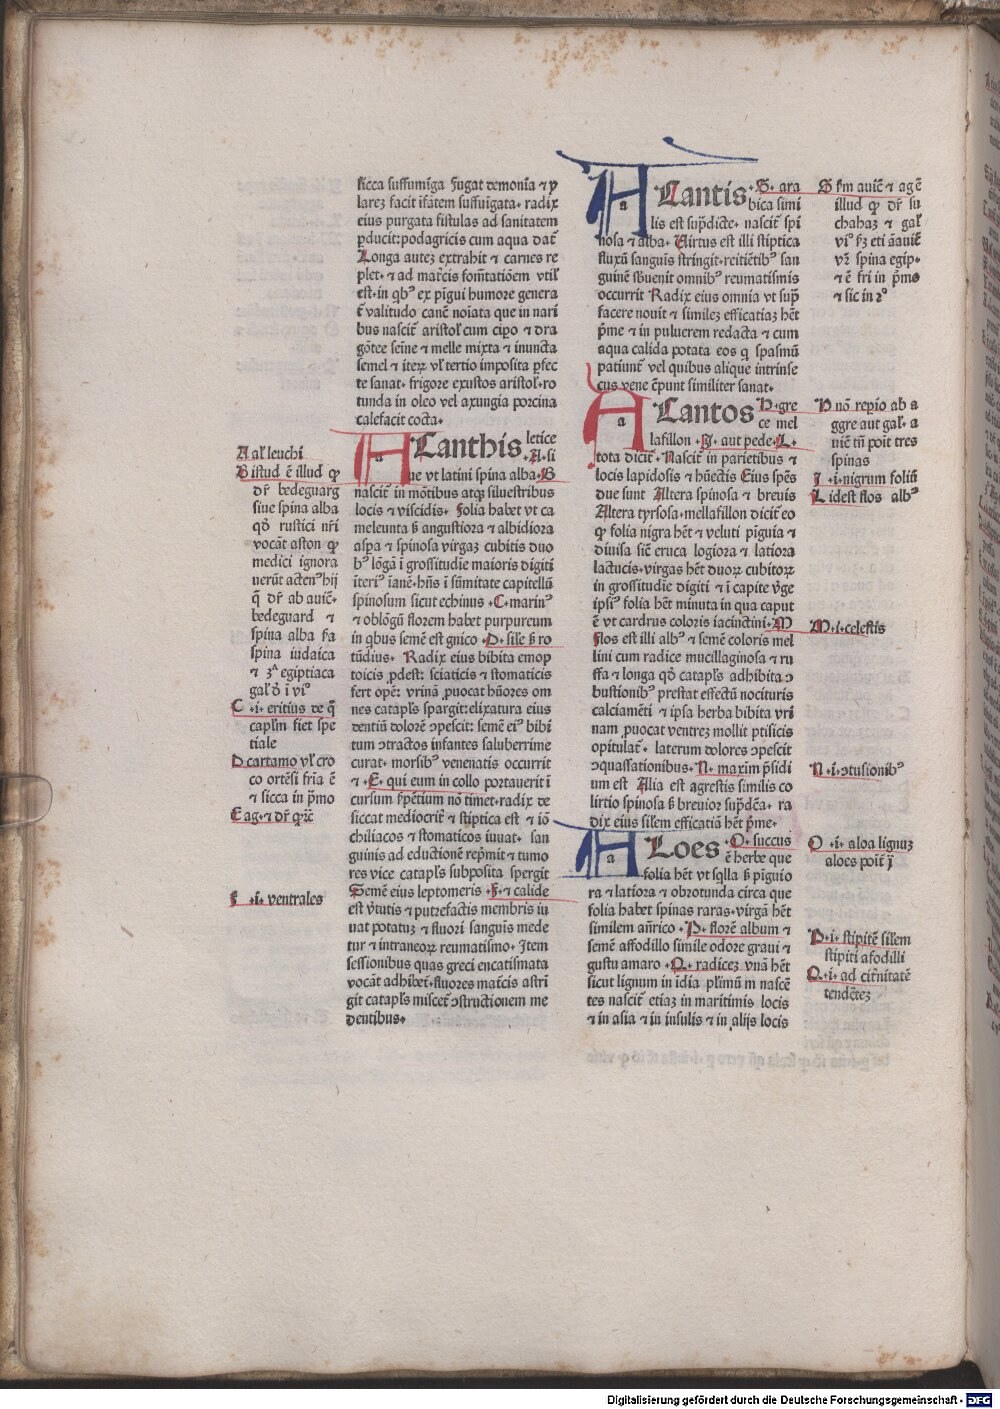 sicca suffumiga fugat demonia ⁊ y
larez facit ifatem suffuigata· radix
eius purgata fistulas ad sanitatem
ꝑducit: podagricis cum aqua dat̄
Longa autez extrahit ⁊ carnes re
plet· ⁊ ad mat̄cis fom̄tatiōem vtil
est· in qb⁹ ex pīgui humore genera
t̄ valitudo canē noīata que in nari
bus nascit̄ aristol̄ cum cipo ⁊ dra
gōtee seīne ⁊ melle mixta ⁊ inuncta
semel ⁊ iteꝝ vl̄ tertio imposita pfec
te sanat· frigore exustos aristol̄·ro
tunda in oleo vel axungia porcina
calefacit cocta·
ALanthis letice
·A·si
ne vt latini spina alba·B
nascit̄ in mōtibus atqꝫ siluestribus
locis ⁊ viscidis· Folia habet vt ca
meleunta s̄ angustiora ⁊ albidiora
aspa ⁊ spinosa virgaz cubitis duo
b⁹ lōgā ī grossitudie maioris digiti
iteri⁹ īanē·hn̄s ī sūmitate capitellū
spinosum sicut echinus ·C·marin⁹
⁊ oblōgū florem habet purpureum
in qbus semē est gnico ·D· sile s̄ ro
tūdius· Radix eius bibita emop
toicis ꝓdest: sciaticis ⁊ stomaticis
fert opē: vrinā ꝓuocat hūores om
nes catapl̄s spargit: elixatura eius
dentiū dolorē ɔpescit: semē ei⁹ bibi
tum ɔtractos infantes saluberrime
curat· morsib⁹ venenatis occurrit
⁊ ·E· qui eum in collo portauerit ī
cursum ẜpētium nō timet·radix de
siccat mediocrit̄ ⁊ stiptica est ⁊ iō
chiliacos ⁊ stomaticos iuuat· san
guinis ad eductionē rep̄mit ⁊ tumo
res vice catapl̄s subposita spergit
Semē eius leptomeris ·F· ⁊ calide
est v̄tutis ⁊ putrefactis membris iu
uat potatuz ⁊ fluori sanguīs mede
tur ⁊ intraneoꝝ reumatismo· Item
sessionibus quas greci encatismata
vocāt adhibet̄·fluores mat̄cis astrī
git catapl̄s miscet̄ ɔstructionem me
dentibus·
A al̄ leuchi
B istud ē illud qḋ
dr̄ bedeguarg
siue spina alba
qḋ rustici nr̄i
vocāt aston qḋ
medici ignora
uerūt acten⁹ hij
q̄ dr̄ ab auic̄·
bedeguard ⁊
spina alba ſ̄a
spina iudaica
⁊ 3ᵃ egiptiaca
gal̄ ō ī vi°
C ·i· eritius de q̄
caplm fiet spe
tiale
D cartamo vl̄ cro
co ortēsi ſria ē
⁊ sicca in p̄mo
E ag· ⁊ dr̄ qric̄
F ·i· ventrales
ALantis ·G· ara
bica simi
lis est sup̄dicte· nascit̄ spi
nosa ⁊ alba· Virtus est illi stiptica
fluxū sanguīs stringit·reitiētib⁹ san
guinē sb̄uenit omnib⁹ reumatismis
occurrit Radix eius omnia vt sup̄
facere nouit ⁊ similez efficatiaz hēt
p̄me ⁊ in puluerem redacta ⁊ cum
aqua calida potata eos q spasmū
patiunt̄ vel quibus alique intrinse
cus vene r̄punt similiter sanat·
ALantos ·H·gre
ce mel
lafillon ·J· aut pede·L·
tota dicit̄· Nascit̄ in parietibus ⁊
locis lapidosis ⁊ hūectis Eius spēs
due sunt Altera spinosa ⁊ breuis
Altera tyrsosa·mellafillon dicit̄ eo
qḋ folia nigra hēt ⁊ veluti pīguia ⁊
diuisa sic̄ eruca lōgiora ⁊ latiora
lactucis·virgas hēt duoꝝ cubitoꝝ
in grossitudie digiti ⁊ ī capite v̄ge
ipsi⁹ folia hēt minuta in qua caput
ē vt cardrus coloris iacinctini·M
Flos est illi alb⁹ ⁊ semē coloris mel
lini cum radice mucillaginosa ⁊ ru
ffa ⁊ longa qḋ catapl̄s adhibita ɔ
bustionib⁹ prestat effectū nocituris
calciamēti ⁊ ipsa herba bibita vri
nam ꝓuocat ventrez mollit ptisicis
opitulat̄· laterum dolores ɔpescit
ɔquassationibus·N· maxim p̄sidi
um est Alia est agrestis similis co
lirtio spinosa s̄ breuior sup̄dc̄a· ra
dix eius sil̄em efficatiā hēt p̄me·
ALoes ·O·succus
ē herbe que
folia hēt vt sqlla s̄ pīguio
ra ⁊ latiora ⁊ obrotunda circa que
folia habet spinas raras·virgā hēt
similem an̄rico ·P· florē album ⁊
semē affodillo simile odore graui ⁊
gustu amaro ·Q· radicez vnā hēt
sicut lignum in idia pl̄imū m nascē
tes nascit̄ etiaz in maritimis locis
⁊ in asia ⁊ in insulis ⁊ in alijs locis
G ẜm auic̄ ⁊ agē
illud qḋ dr̄ su
chahaz ⁊ gal̄
vi° sꝫ eti āauic̄
vr̄ spina egip·
⁊ ē fri in p̄mo
⁊ sic in 2°
H nō rep̄io ab a
ggre aut gal̄· a
uic̄ tn̄ poit tres
spinas
J ·i·nigrum foliū
L idest flos alb⁹
M ·i·celestis
N ·i·ɔtusionib⁹
O ·i· aloa lignuz
aloes poit̄ ī
P ·i· stipitē sil̄em
stipiti afodilli
Q ·i· ad citr̄nitatē
tendētez
Digitalisierung gefördert durch die Deutsche Forschungsgemeinschaft - DFG